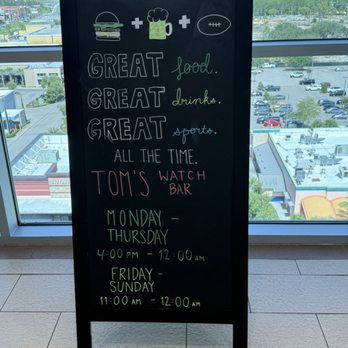 GREAT food.
GREAT drinks.
GREAT sports.
ALL THE TIME.
TOM'S WATCH BAR
MONDAY -
THURSDAY
4:00 PM - 12:00 AM
FRIDAY -
SUNDAY
11:00 AM - 12:00 AM